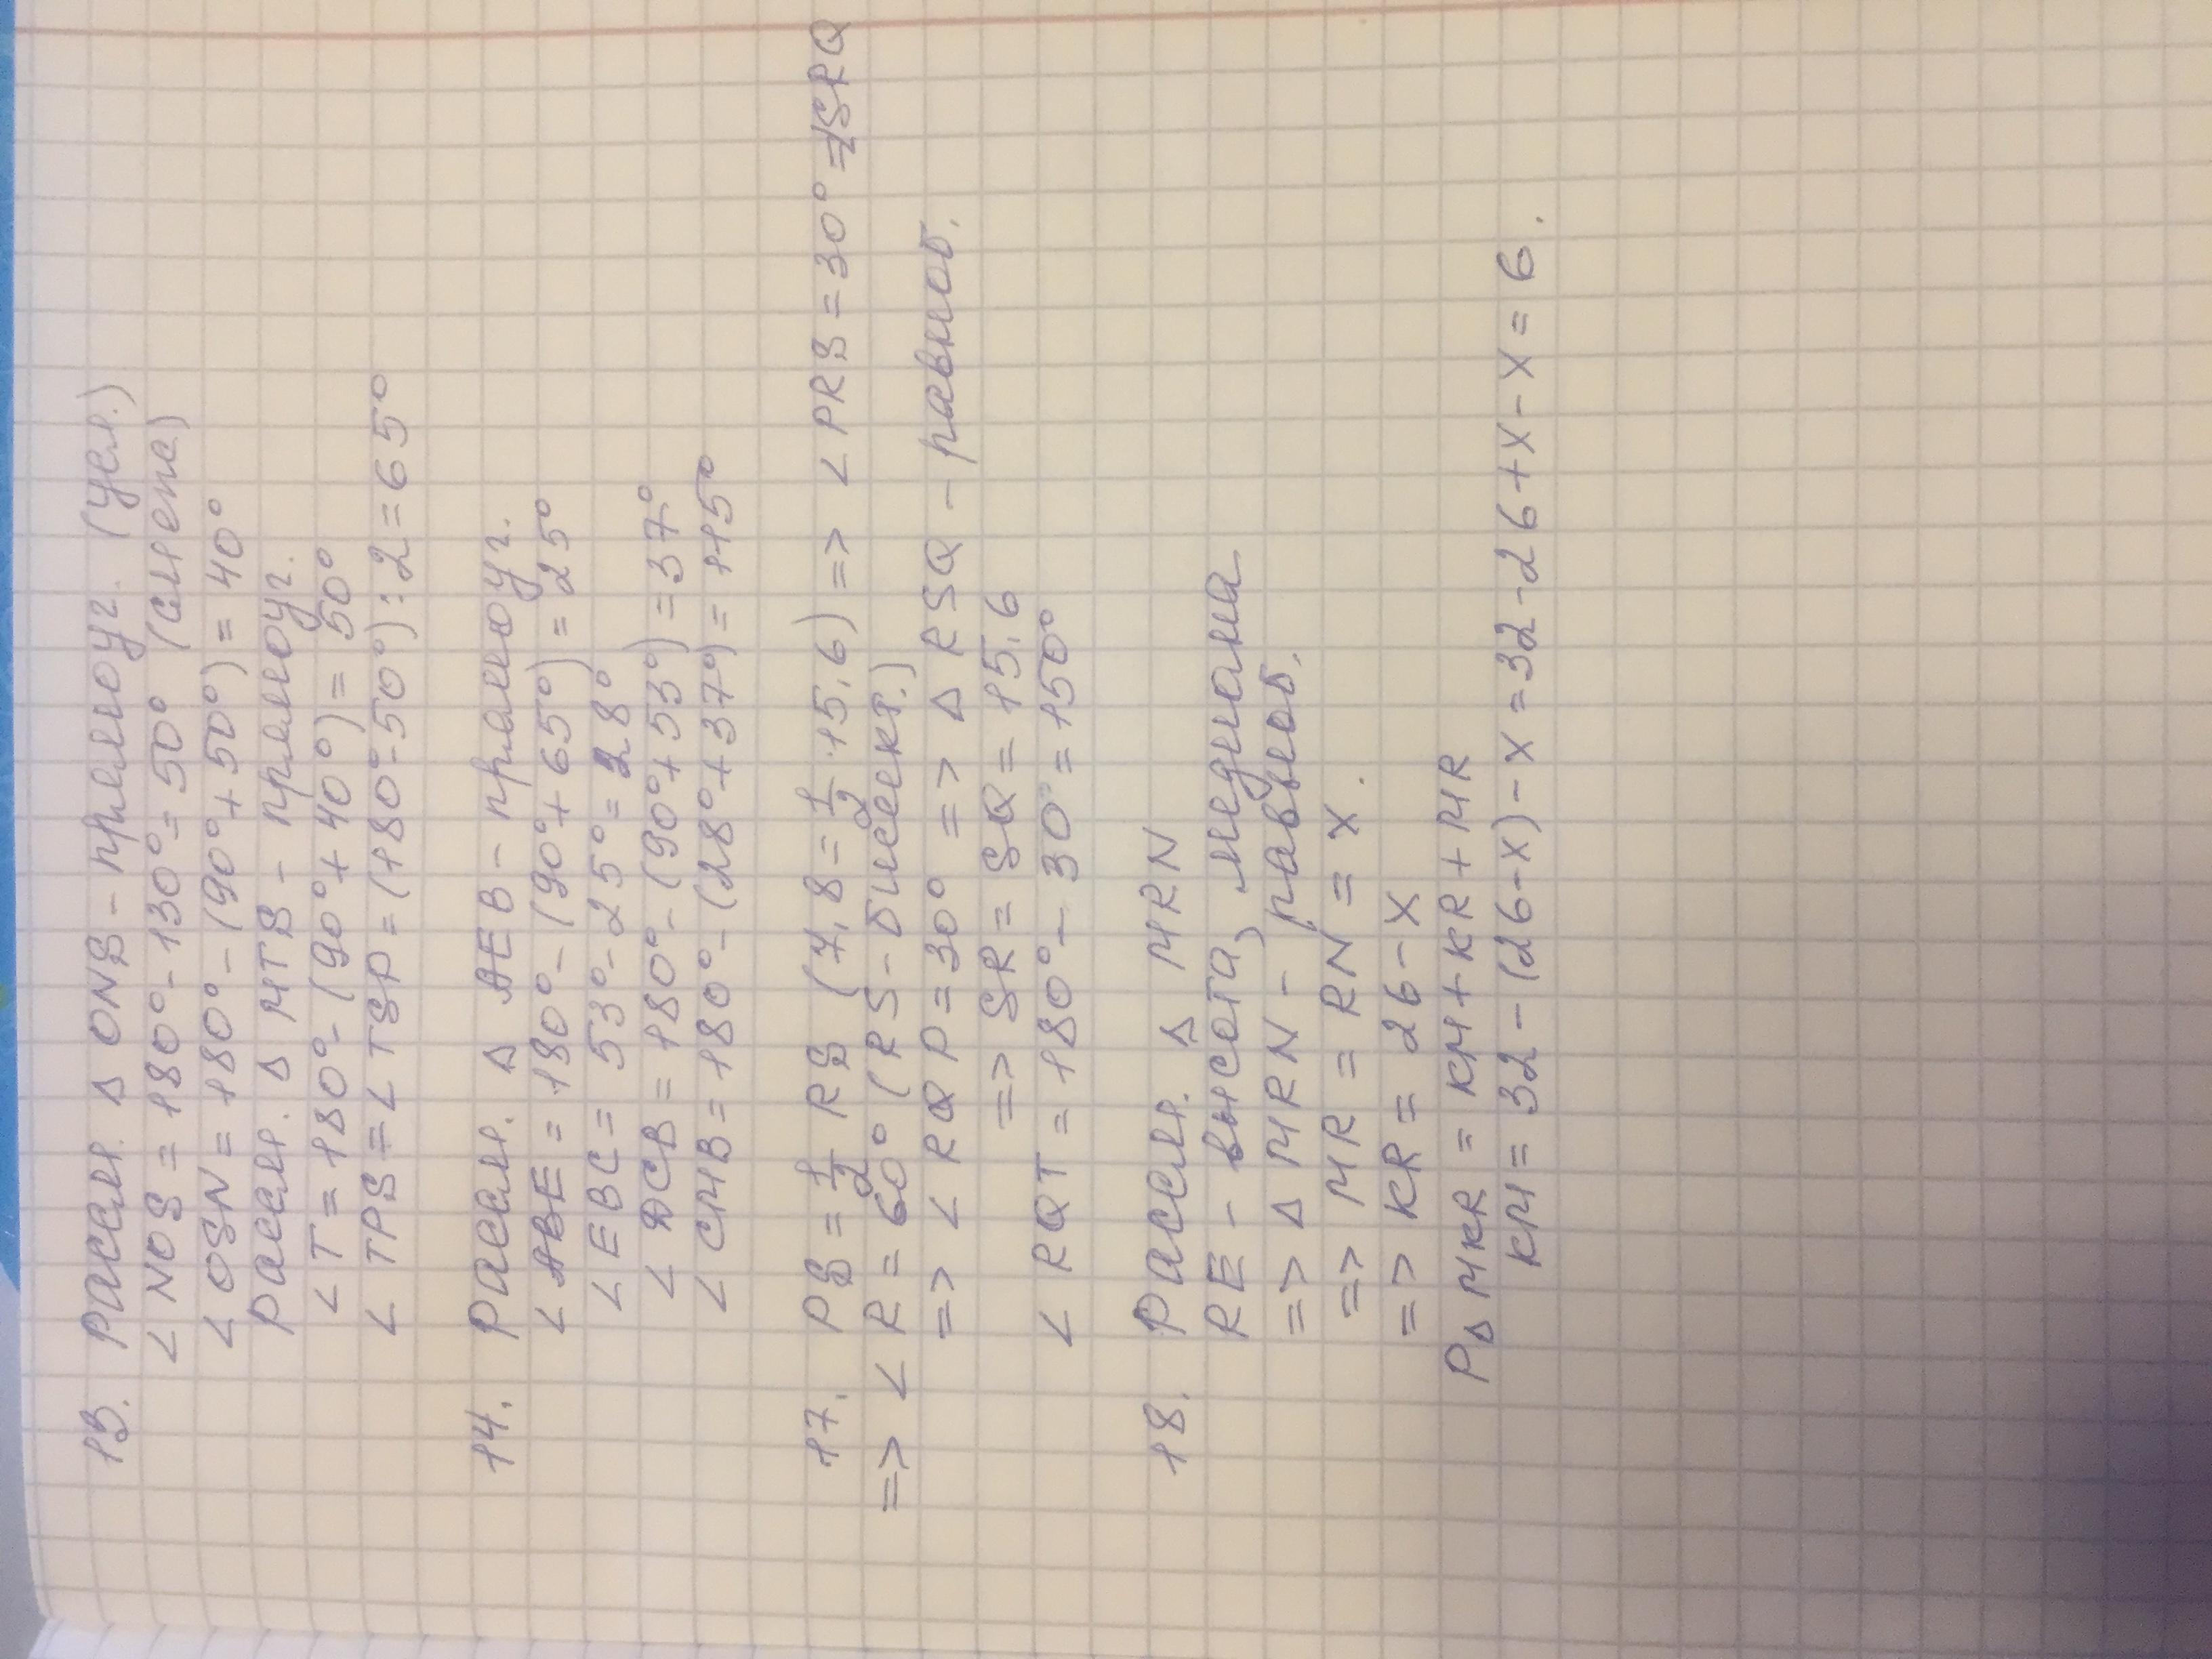 13. Рассм. Δ ONS - прямоуг. (усл.)
∠ NOS = 180° - 130° = 50° (смена)
∠ OSN = 180° - (90° + 50°) = 40°
Рассм. Δ MTS - прямоуг.
∠ T = 180° - (90° + 40°) = 50°
∠ TPS = ∠ TSP = (180° - 50°) : 2 = 65°
14. Рассм. Δ AEB - прямоуг.
∠ ABE = 180° - (90° + 65°) = 25°
∠ EBC = 53° - 25° = 28°
∠ DCB = 180° - (90° + 53°) = 37°
∠ CMB = 180° - (28° + 37°) = 115°
17. PS = 1/2 RS (7,8 = 1/2 · 15,6) => ∠ PRS = 30° = ∠SRQ
=> ∠ R = 60° (RS - биссект.)
=> ∠ RQP = 30° => Δ RSQ - равноб.
=> SR = SQ = 15,6
∠ RQT = 180° - 30° = 150°
18. Рассм. Δ MRN
RE - высота, медиана
=> Δ MRN - равноб.
=> MR = RN = x.
=> KR = 26 - x
PΔMKR = KM + KR + MR
KM = 32 - (26 - x) - x = 32 - 26 + x - x = 6.